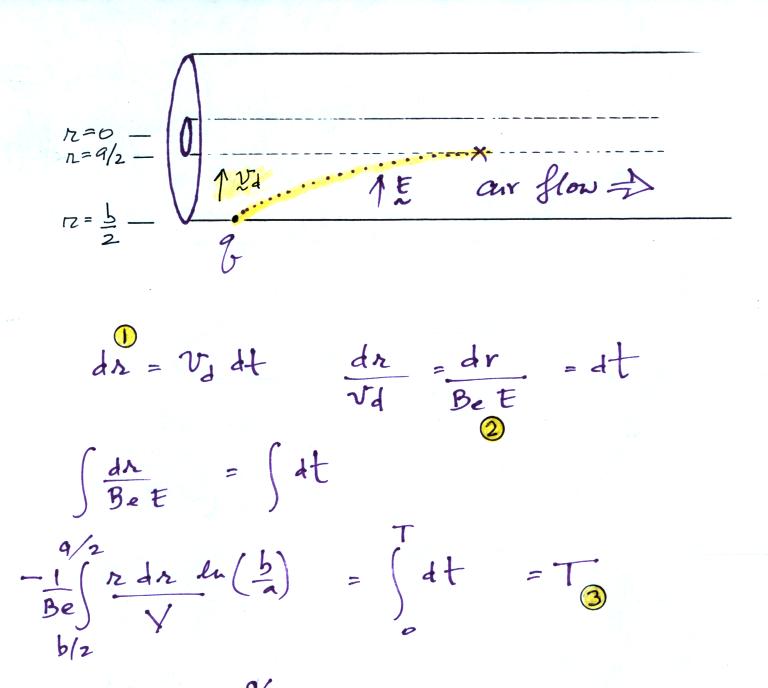 r=0 —
r=a/2 —
v_d
E
air flow ⇒
r = b/2 —
q
①
dr = v_d dt dr/v_d = dr/(Be E) = dt
②
∫ dr/(Be E) = ∫ dt
-1/Be ∫_{b/2}^{a/2} (r dr)/V ln(b/a) = ∫_0^T dt = T
③